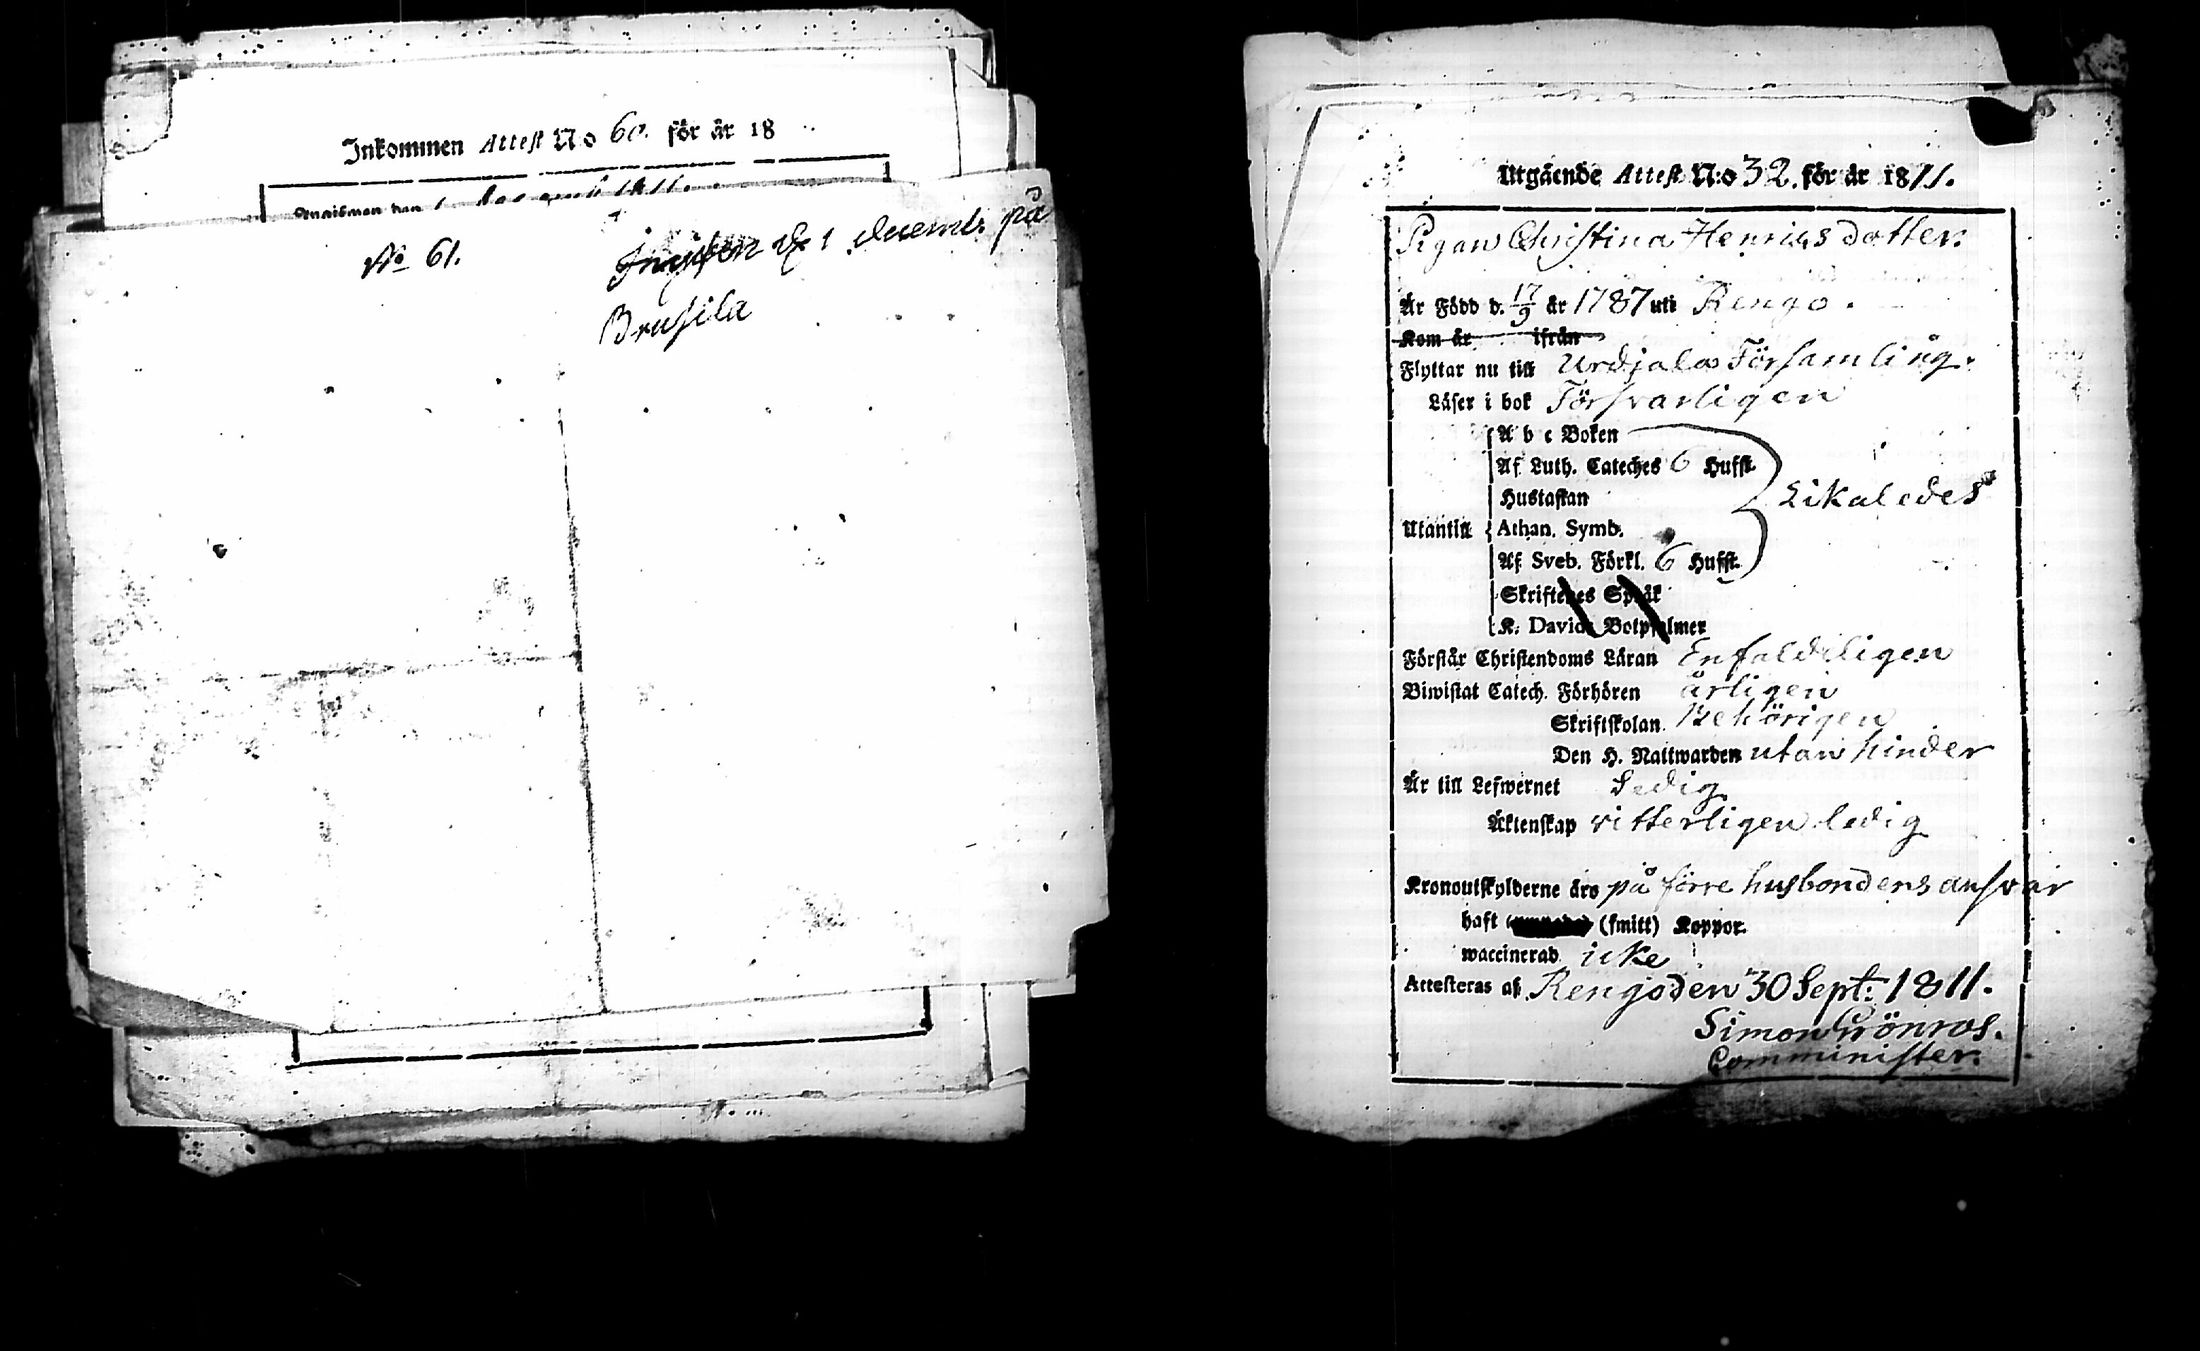 Inkommen Attest No 60. för år 18
Angifwen den 1 decemb 1811.
No 61.
Ingifven d. 1 decemb. på
Brusila
Utgående Attest N:o 32. för år 1811.
Pigan Christina Henricsdotter.
Är Född d. 17/9 år 1787 uti Rengo.
Kom år ifrån
Flyttar nu till Urdjala Församling.
Läser i bok Försvarligen
A b c Boken
Af Luth. Cateches 6 Hufst.
Hustaflan
Likaledes
Utantill Athan. Symb.
Af Sveb. Förkl. 6 Hufst.
Skriftenes Språk
K. Davids Botpsalmer
Förstår Christendoms Läran Enfaldeligen
Biwistat Catech. Förhören årligen
Skriftskolan Behörigen
Den H. Nattwarden utan hinder
Är till Lefwernet Sedig
Äktenskap vitterligen ledig
Kronoutskylderne äro på förre husbondens ansvar
haft (smitt) Koppor.
waccinerad icke
Attesteras af Rengo den 30 Sept: 1811.
Simon Grönroos.
Comminister.